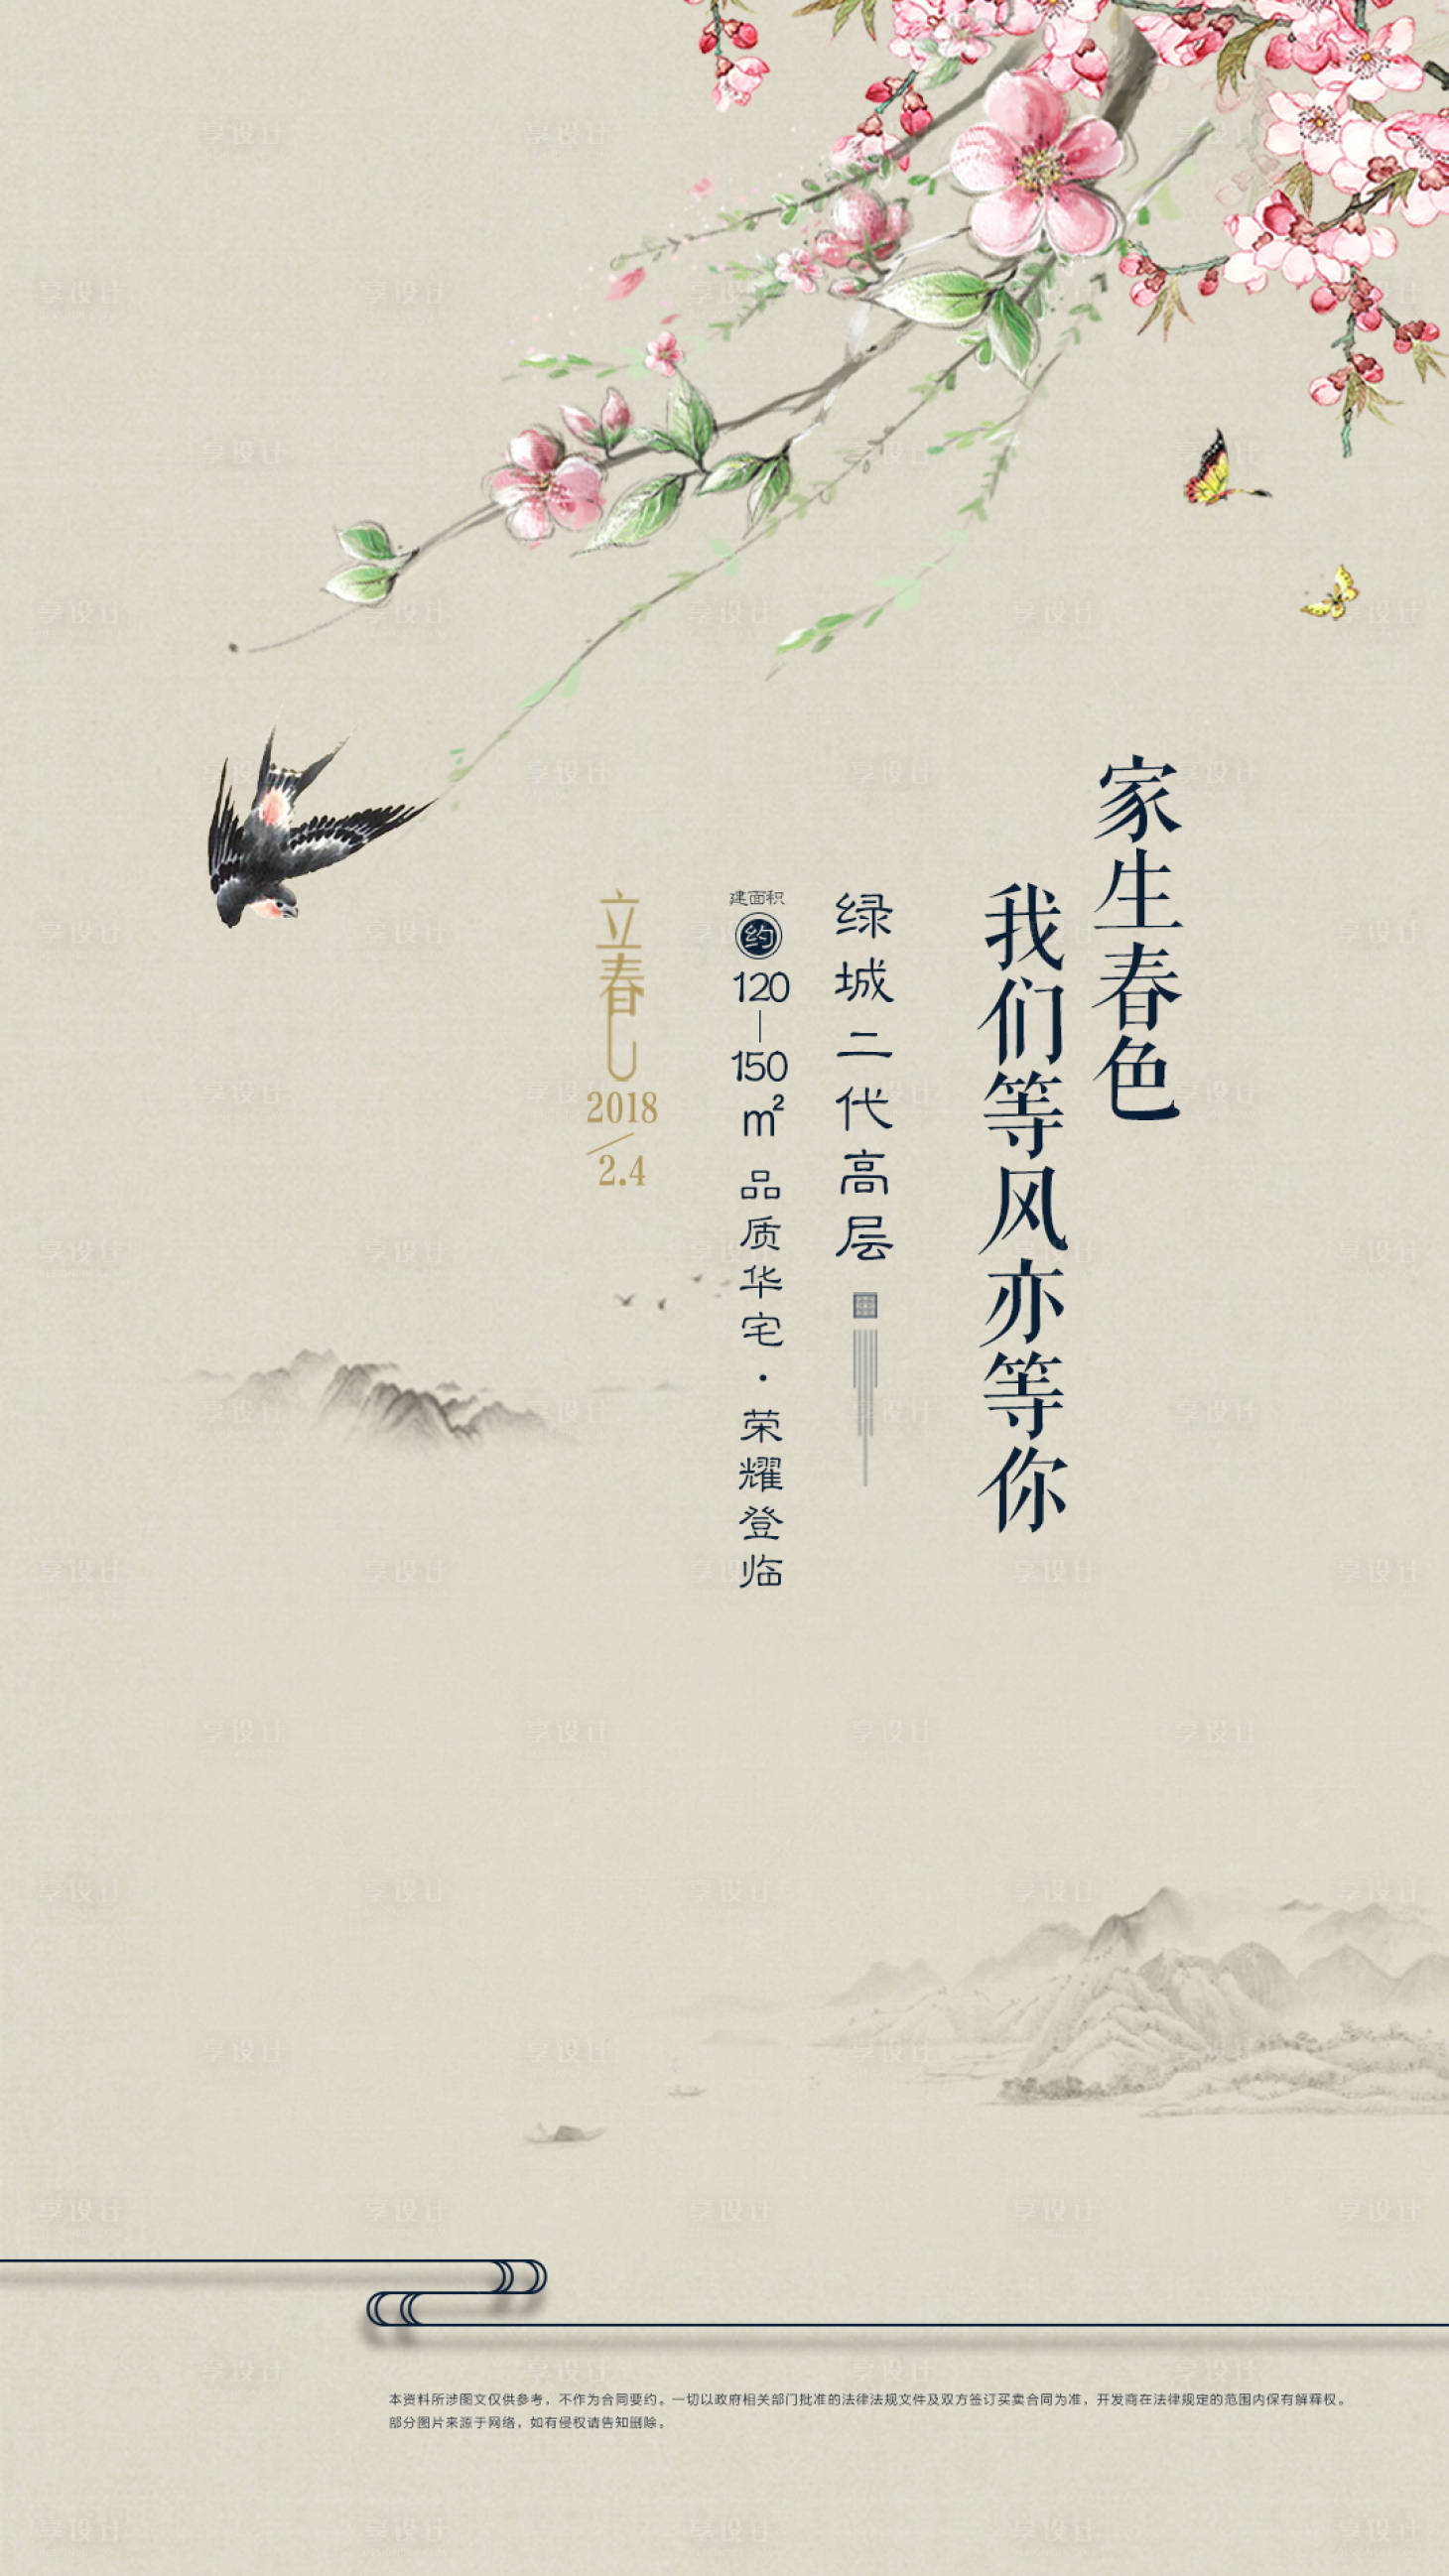 家生春色
我们等风亦等你
绿城二代高层
建面积
约
120
—
150
m²
品质华宅·荣耀登临
立春
2018
/
2.4
本资料所涉图文仅供参考，不作为合同要约。一切以政府相关部门批准的法律法规文件及双方签订买卖合同为准，开发商在法律规定的范围内保有解释权。
部分图片来源于网络，如有侵权请告知删除。
享设计